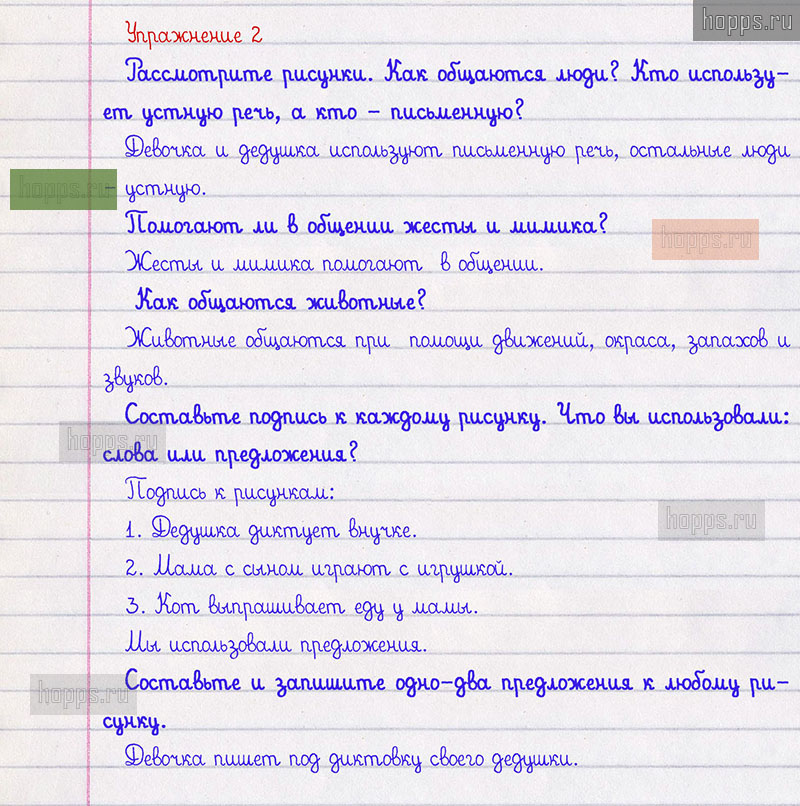 hopps.ru
Упражнение 2
Рассмотрите рисунки. Как общаются люди? Кто использу-
ет устную речь, а кто – письменную?
Девочка и дедушка используют письменную речь, остальные люди
hopps.ru
- устную.
Помогают ли в общении жесты и мимика?
hopps.ru
Жесты и мимика помогают в общении.
Как общаются животные?
Животные общаются при помощи движений, окраса, запахов и
звуков.
Составьте подпись к каждому рисунку. Что вы использовали:
hopps.ru
слова или предложения?
Подпись к рисункам:
hopps.ru
1. Дедушка диктует внучке.
2. Мама с сыном играют с игрушкой.
3. Кот выпрашивает еду у мамы.
Мы использовали предложения.
Составьте и запишите одно-два предложения к любому ри-
hopps.ru
сунку.
Девочка пишет под диктовку своего дедушки.